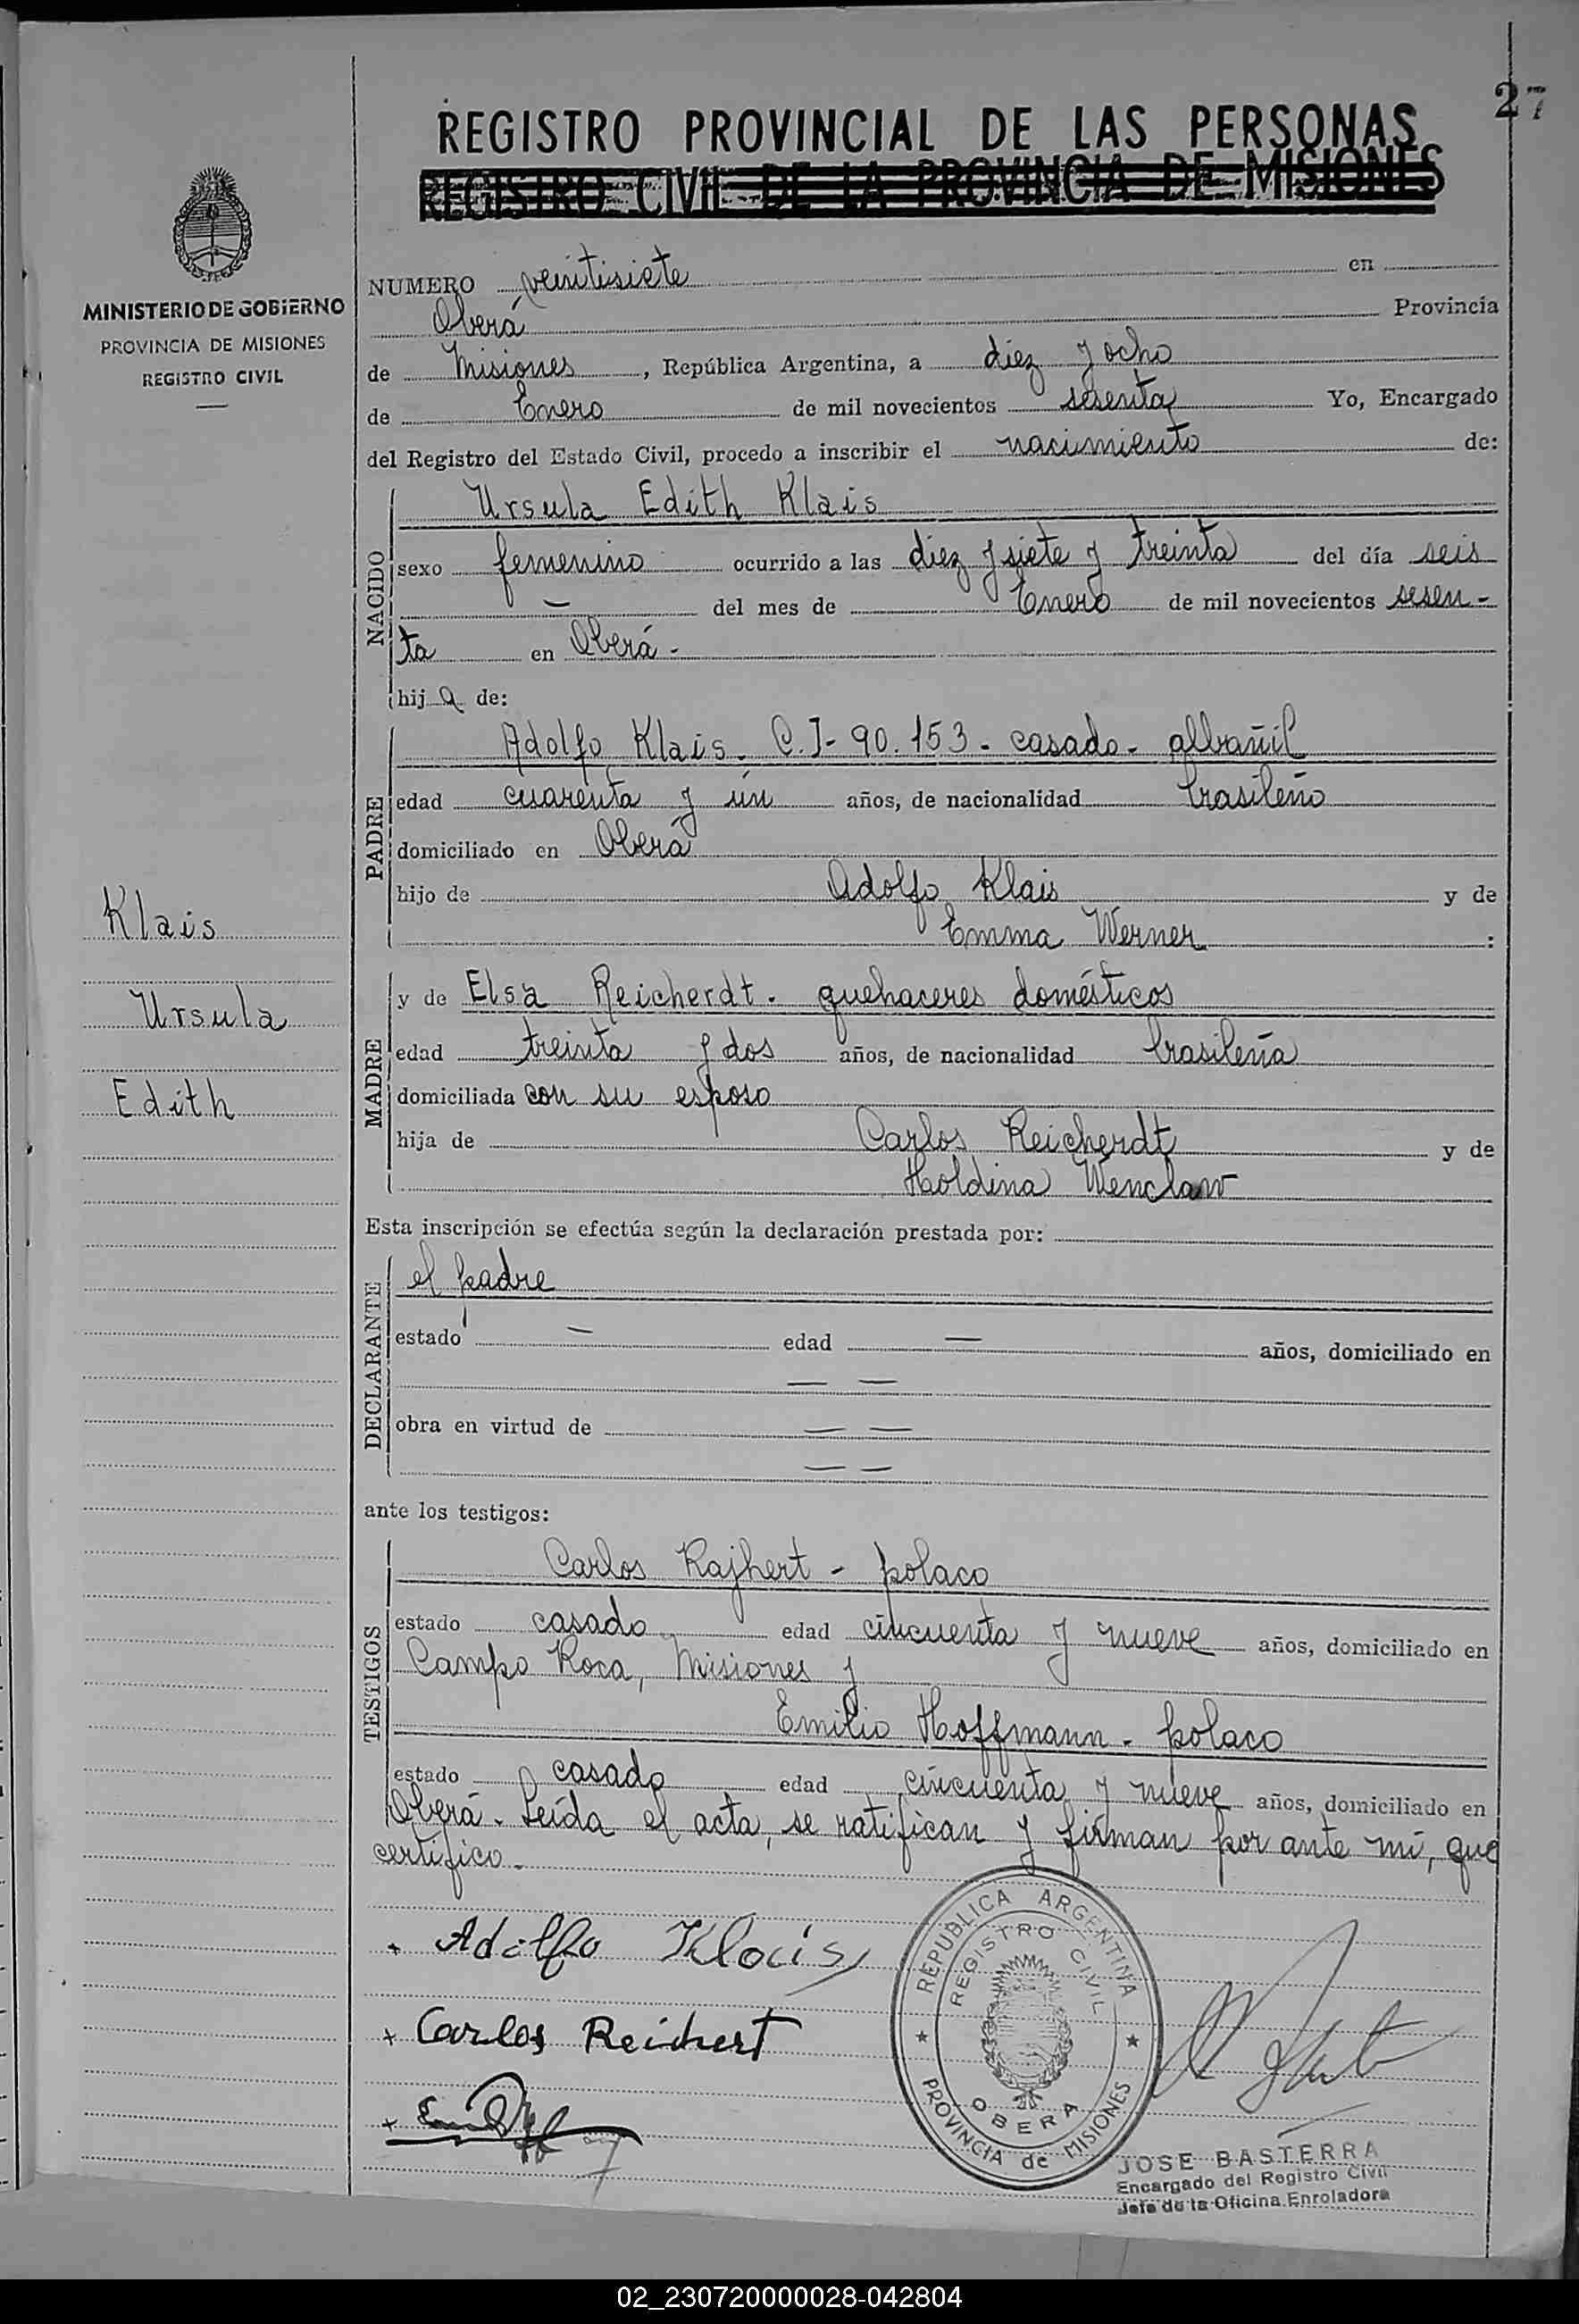 27
REGISTRO PROVINCIAL DE LAS PERSONAS
REGISTRO CIVIL DE LA PROVINCIA DE MISIONES
MINISTERIO DE GOBIERNO
PROVINCIA DE MISIONES
REGISTRO CIVIL
NUMERO veintisiete en
Oberá Provincia
de Misiones, República Argentina, a diez y ocho
de Enero de mil novecientos sesenta Yo, Encargado
del Registro del Estado Civil, procedo a inscribir el nacimiento de:
NACIDO
Ursula Edith Klais
sexo femenino ocurrido a las diez y siete y treinta del día seis
— del mes de Enero de mil novecientos sesen-
ta en Oberá -
hija de:
PADRE
Adolfo Klais - C.I- 90.153 - casado - albañil
edad cuarenta y un años, de nacionalidad brasileño
domiciliado en Oberá
hijo de Adolfo Klais y de
Emma Werner :
Klais
Ursula
Edith
MADRE
y de Elsa Reicherdt - quehaceres domésticos
edad treinta y dos años, de nacionalidad brasileña
domiciliada con su esposo
hija de Carlos Reicherdt y de
Holdina Wenclaw
Esta inscripción se efectúa según la declaración prestada por:
DECLARANTE
el padre
estado — edad — años, domiciliado en
— —
obra en virtud de — —
— —
ante los testigos:
TESTIGOS
Carlos Rajhert - polaco
estado casado edad cincuenta y nueve años, domiciliado en
Campo Roca, Misiones y
Emilio Hoffmann - polaco
estado casado edad cincuenta y nueve años, domiciliado en
Oberá - Leída el acta, se ratifican y firman por ante mí, que
certifico -
+ Adolfo Klais
+ Carlos Reichert
+
REPUBLICA ARGENTINA
REGISTRO CIVIL
OBERA
PROVINCIA de MISIONES
JOSE BASTERRA
Encargado del Registro Civil
Jefe de la Oficina Enroladora
02_230720000028-042804